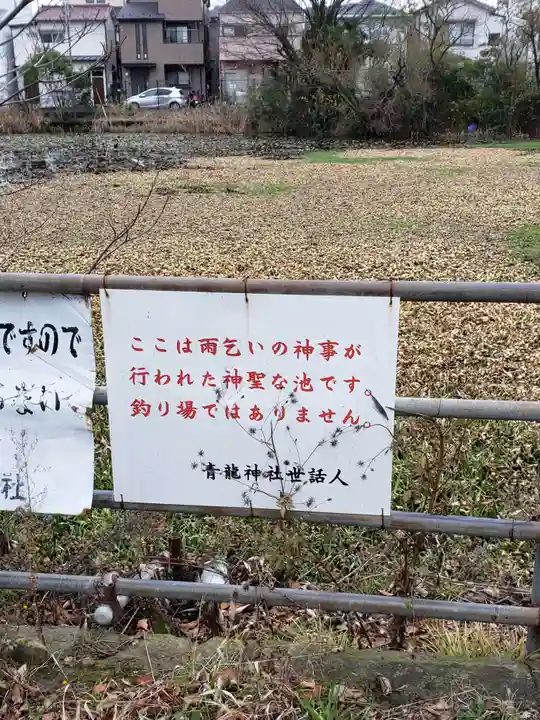 ですので
社
ここは雨乞いの神事が
行われた神聖な池です。
釣り場ではありません。
青龍神社世話人